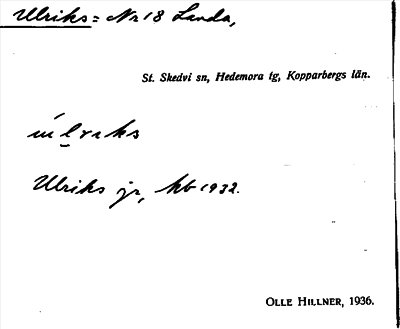 Ulriks = Nr 18 Landa,
St. Skedvi sn, Hedemora tg, Kopparbergs län.
úlrɩks
Ulriks jr, kb 1932.
OLLE HILLNER, 1936.